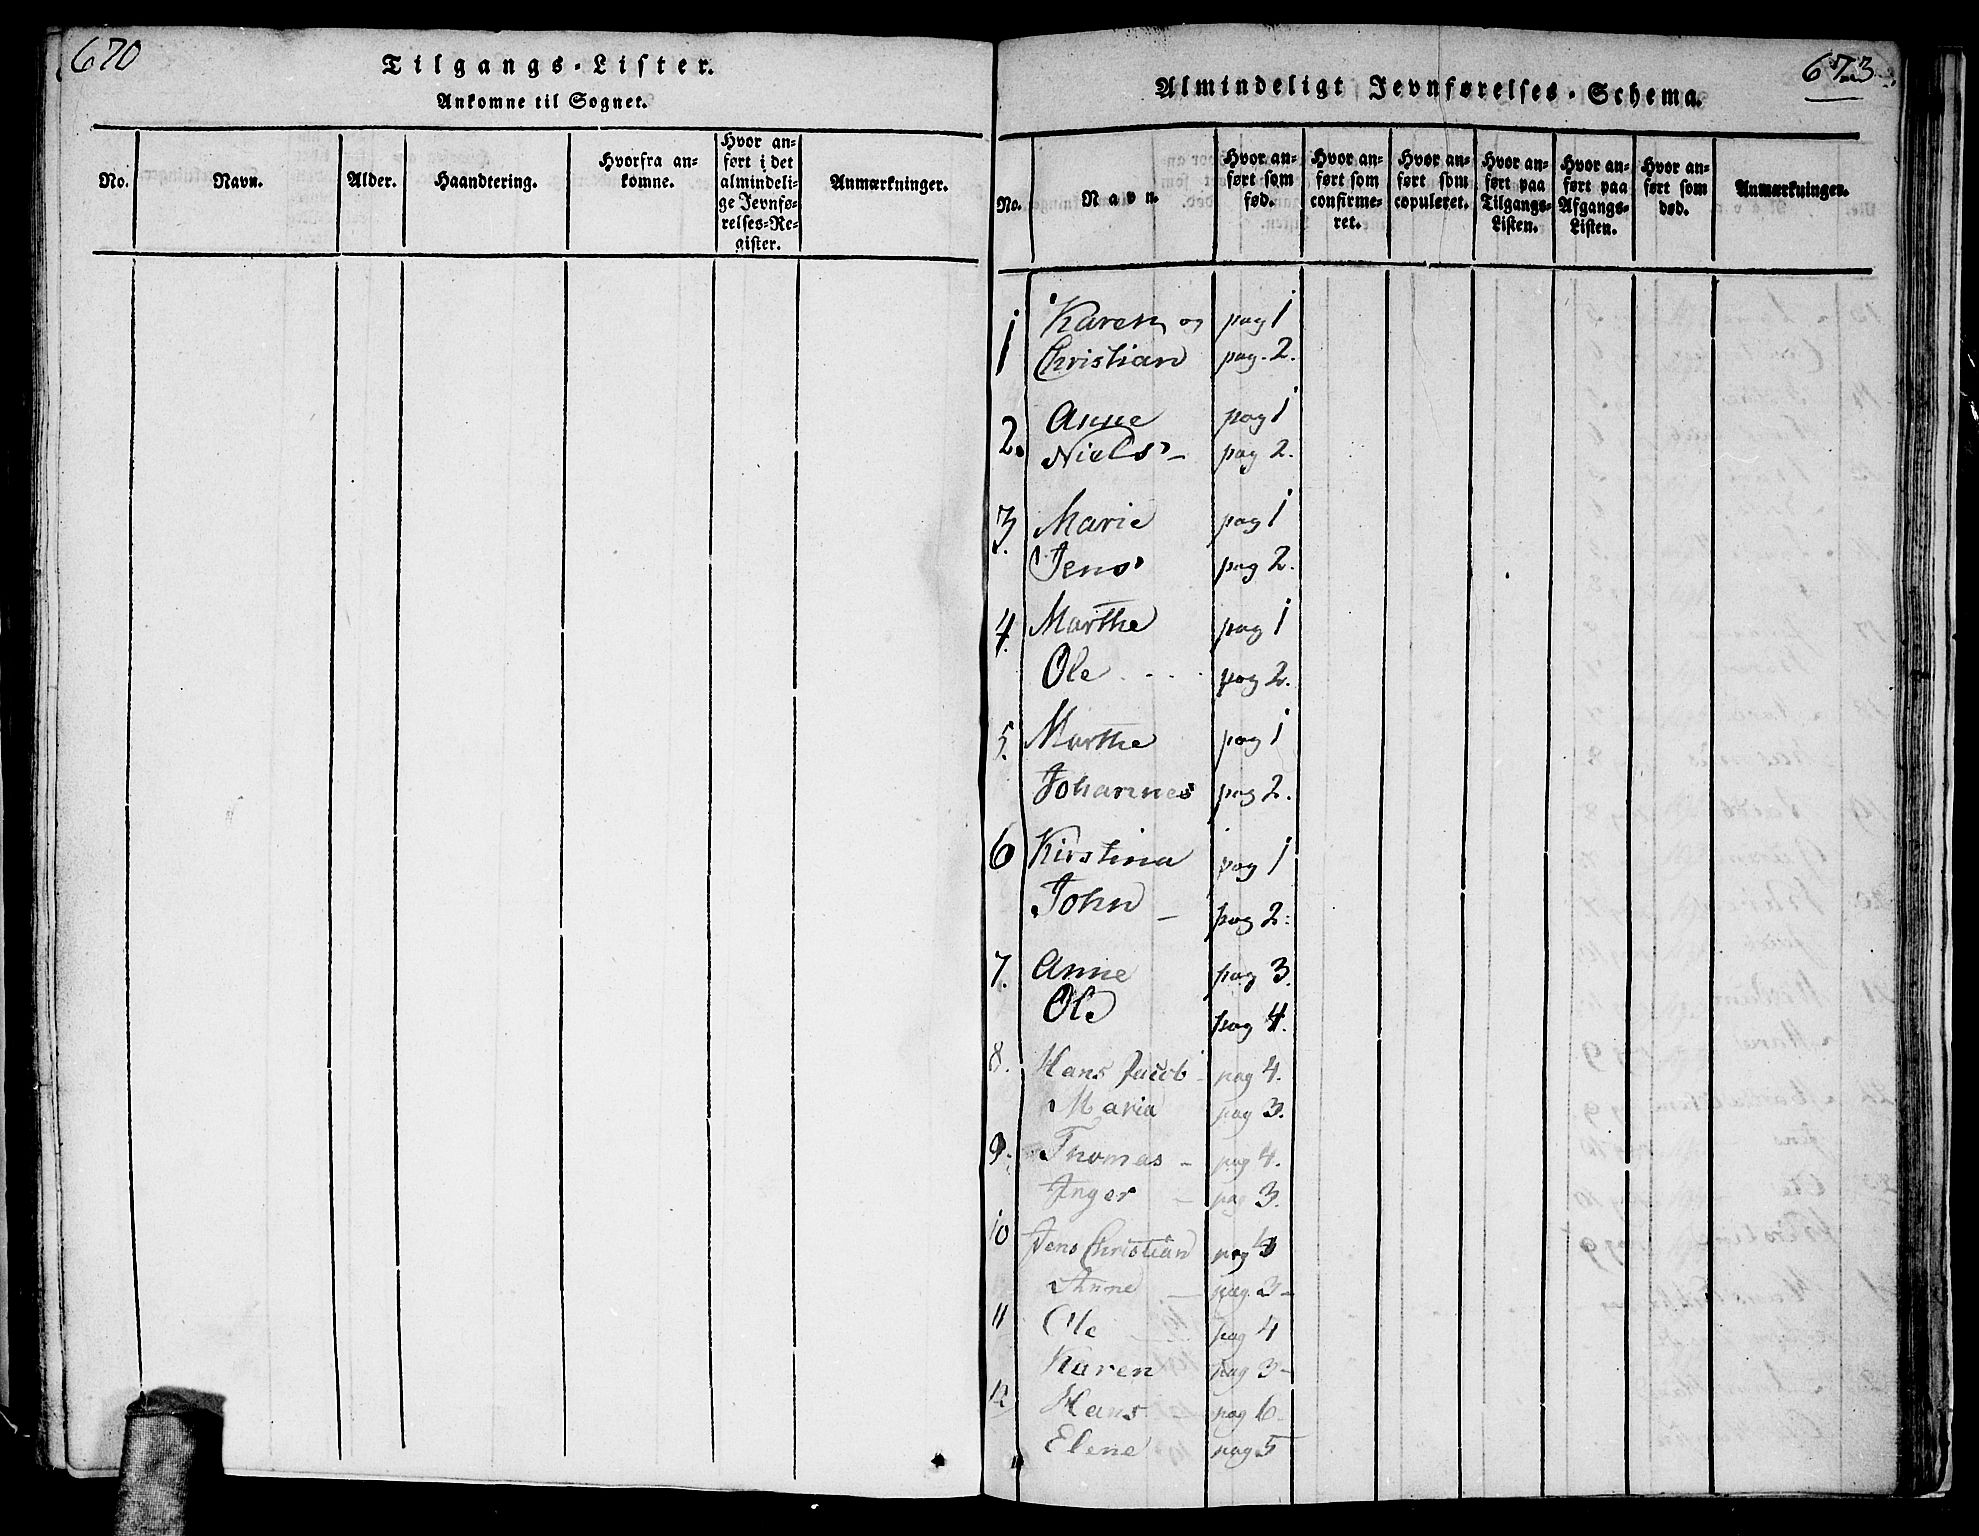 670
Tilgangs-Lister.
Ankomne til Sognet.
No.
Navn.
Alder.
Haandtering.
Hvorfra an-
komne.
Hvor an-
ført i det
almindeli-
ge Jevnfø-
relses-Re-
gister.
Anmærkninger.
673
Almindeligt Jevnførelses-Schema.
No.
Navn.
Hvor an-
ført som
fød.
Hvor an-
ført som
confirme-
ret.
Hvor an-
ført som
copuleret.
Hvor an-
ført paa
Tilgangs-
Listen.
Hvor an-
ført paa
Afgangs-
Listen.
Hvor an-
ført som
død.
Anmærkninger.
1 Karen og pag 1
Christian pag. 2.
2. Anne pag 1
Niels - pag 2.
3. Marie pag 1
Jens pag 2.
4. Marthe pag 1
Ole . - - . pag 2.
5. Marthe pag 1
Johannes pag 2.
6 Kirstina pag 1
John - pag 2.
7. Anne pag 3.
Ole pag 4.
8. Hans Jacob - pag 4.
Maria pag 3.
9. Thomas - pag 4.
Inger - pag 3.
10 Jens Christian pag 4
Anne - pag. 3 -
11 Ole pag 4
Karen pag 3 -
12 Hans pag 6 -
Elene pag 5